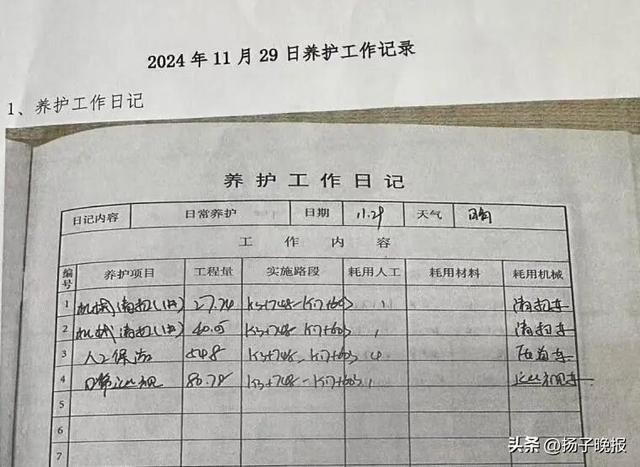 2024 年 11 月 29 日养护工作记录
1、养护工作日记
养护工作日记
日记内容 日常养护 日期 11.29 天气 晴
工作内容
编号 养护项目 工程量 实施路段 耗用人工 耗用材料 耗用机械
1 机械清扫(1类) 27.74 K3+748-K17+603 1 清扫车
2 机械清扫(1类) K3+748-K17+603 1 清扫车
3 人工保洁 K3+748-K17+603 4
4 日常巡视 80.78 K3+748-K17+603 1 巡视车
5
6
7
头条 @扬子晚报